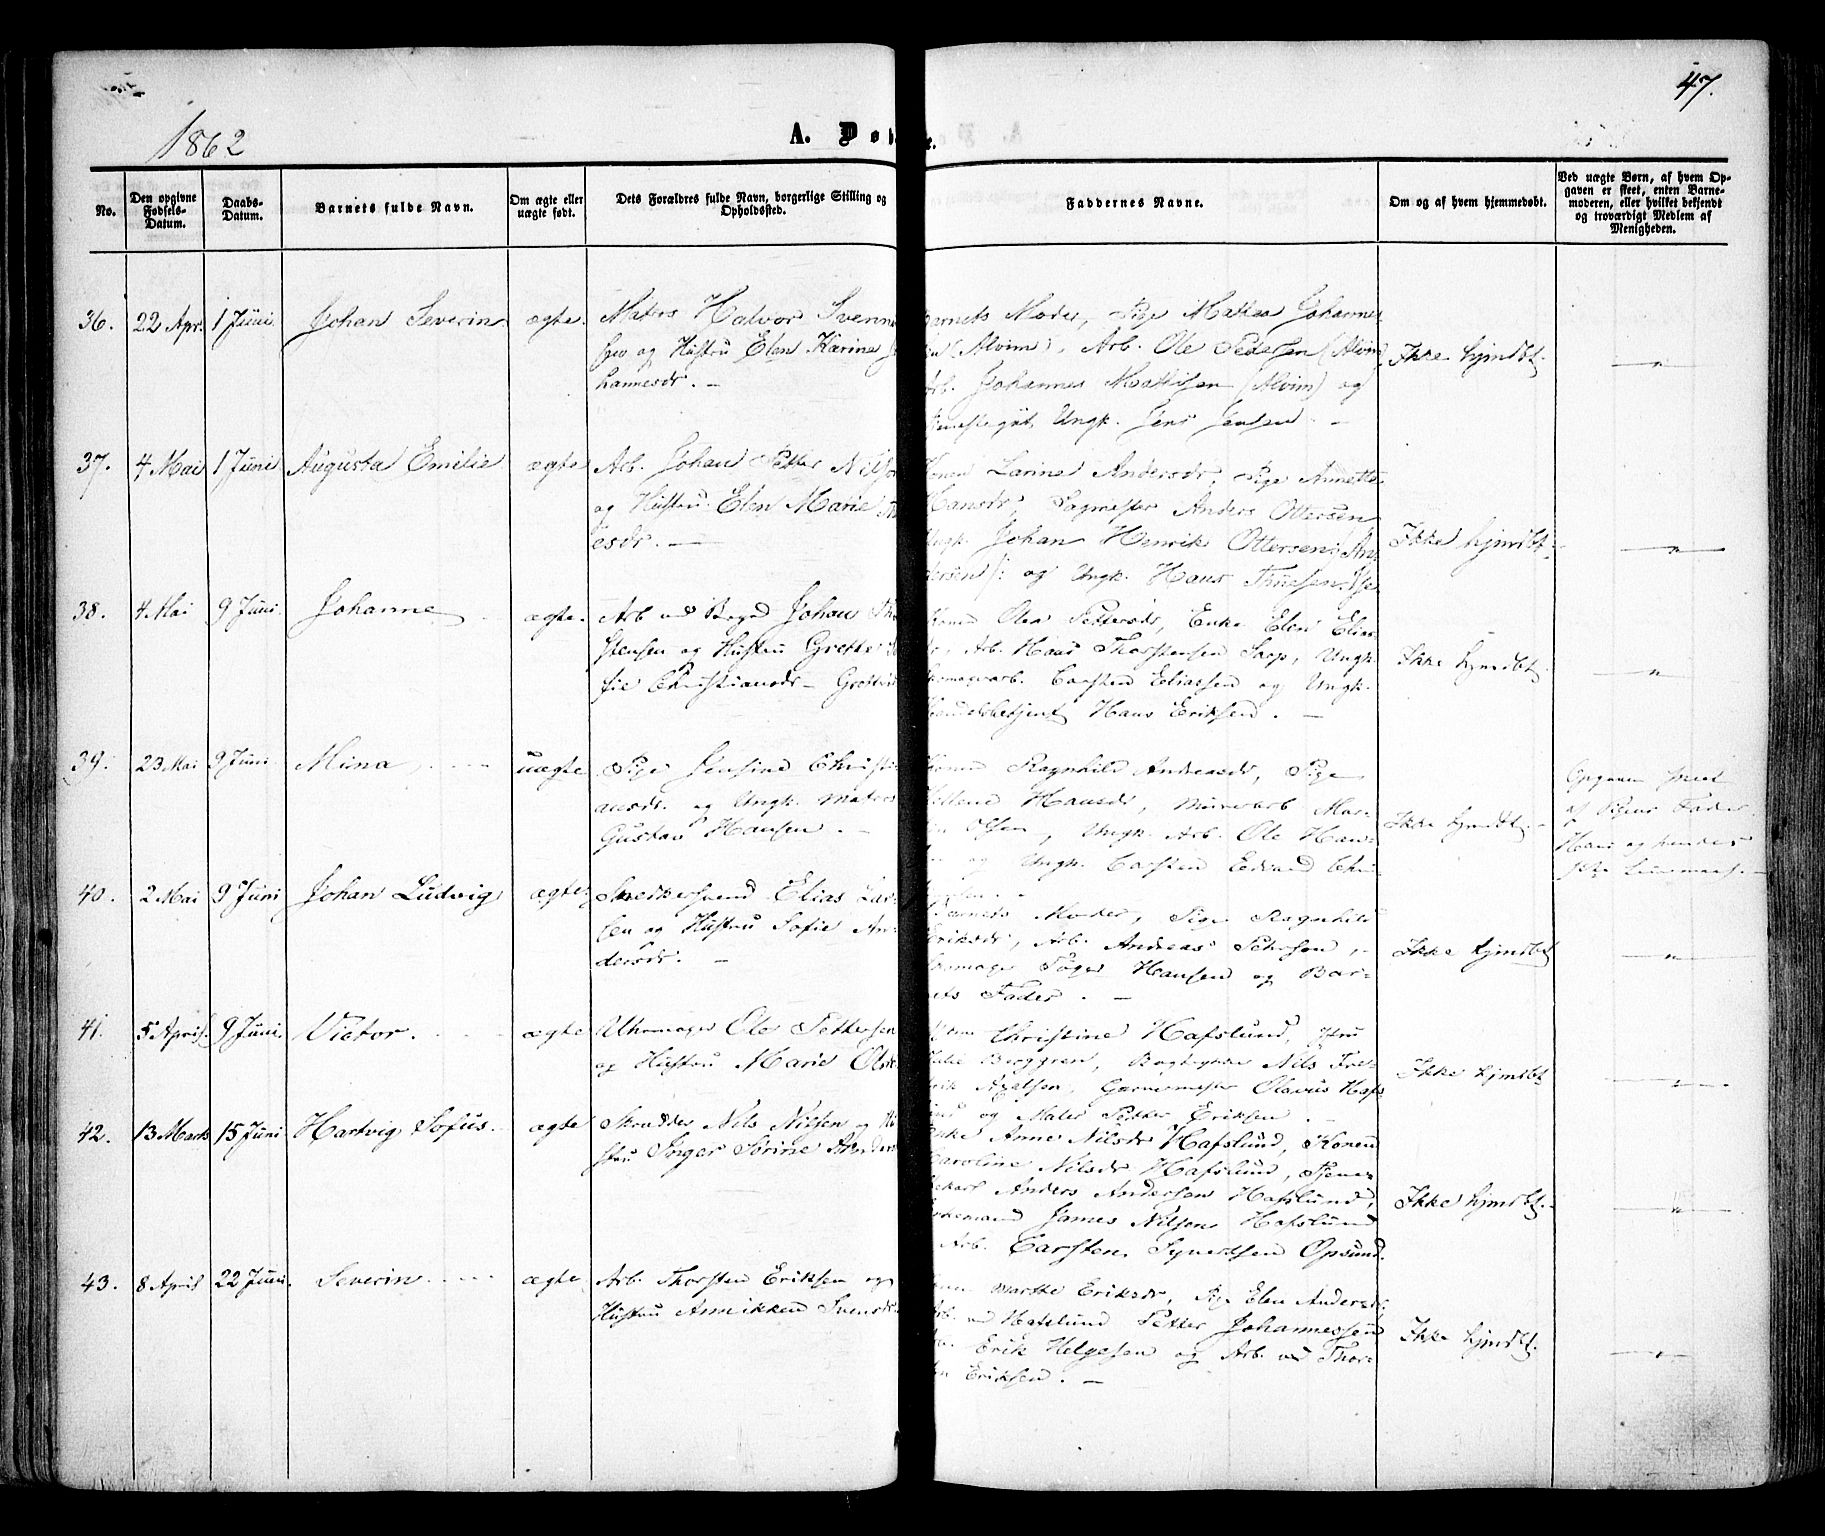 47.
1862
A. Døbte.
No.
Den opgivne Fødsels-Datum.
Daabs-Datum.
Barnets fulde Navn.
Om ægte eller uægte født.
Dets Forældres fulde Navn, borgerlige Stilling og Opholdsted.
Faddernes Navne.
Om og af hvem hjemmedøbt.
Ved uægte Børn, af hvem Opgaven er skeet, enten Barnemoderen, eller hvilket bekjendt og troværdigt Medlem af Menigheden.
36. 22 Apr. 1 Juni Johan Severin ægte.
Matros Halvor Svenne
sen og Hustru Elen Karine
hannesdr. —
Barnets Moder, Pige Mathea Johannes
(Alvim), Arb. Ole Pedersen (Alvim)
Arb. Johannes Mathisen (Alvim) og
Ungk. Jens Jensen. —
Ikke hjmdbt.
— " —
37. 4 Mai 1 Juni Augusta Emilie ægte
Arb. Johan Petter Nilsen
og Hustru Elen Marie
esdr. —
Kone Larine Andersdr, Pige Annette
Hansdr, Sagmester Anders Ottersen
Ungk. Johan Henrik Ottersen (An
dersen): og Ungk. Hans Thuesen
Ikke hjmdbt.
— " —
38. 4 Mai 9 Juni Johanne ægte.
Arb ved Johan Th
stensen og Hustru Grethe
fie Christiansdr —
Kone Olea Pettersdr, Enke Elen Elias
dr, Arb. Hans Thorstensen Saop, Ungk.
Carsten Eliassen og Ungk.
Handelsbetjent Hans Eriksen. —
Ikke hjmdbt.
— " —
39. 23 Mai 9 Juni Mina uægte
Pige Jensine Christi
ansdr. og Ungk. Matros
Gustav Hansen. —
Kone Ragnhild Andreasdr, Pige
Hellene Hansdr, Murerarb Mar
Olsen, Ungk. Arb. Ole Han-
og Ungk. Carsten Edvard Chri
Ikke hjmdbt. —
Opgaven skeet
af Pigens Fader
Hans og hendes
40. 2 Mai 9 Juni Johan Ludvig ægte
Snedkersvend Elias Lar-
sen og Hustru Sofie An-
dersdr. —
Barnets Moder, Pige Ragnhild
Eriksdr, Arb. Andreas Petersen,
Hansen og Bar-
nets Fader. —
Ikke hjmdbt
— " —
41. 5 April 9 Juni. Victor. ægte
Uhrmager Ole Pettersen
og Hustru Marie Ols
Christine Hafslund, Fru
Julie Berggren, Bogtrykker Nils Fre-
rik Axelsen, Garvermester Olavus Hafs
og Maler Petter Eriksen. —
Ikke hjmdbt
— " —
42. 13 Marts 15 Juni Hartvig Sofus. ægte
Skrædder Nils Nilsen og Hu
stru Inger Sørine Anders
Enke Anne Nilsdr Hafslund, Konen
Caroline Nilsdr Hafslund, Tjene-
stekarl Anders Andersen Hafslund,
James Nilsen Hafslund
Arb. Carsten Syvertsen Opsund.
Ikke hjmdbt. —
— " —
43. 8 April 22 Juni. Severin. ægte
Arb. Thorsten Eriksen og
Hustru Annikken Svensdr
Marthe Eriksdr, Pige Elen Andersdr,
Arb. ved Hafslund Petter Johannessen
Erik Helgesen og Arb. ved Thor-
Eriksen. —
Ikke hjmdbt.
— " —